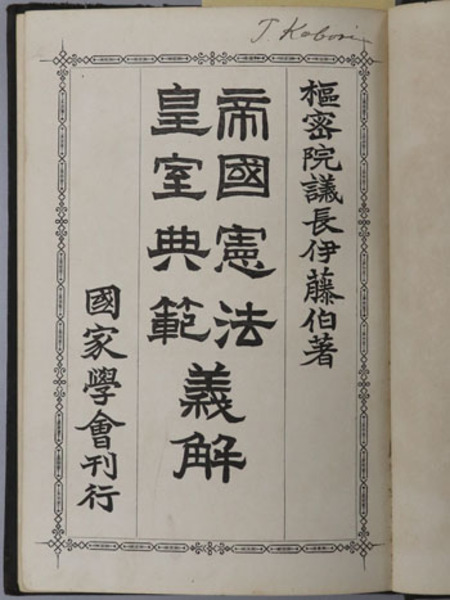 T Kobori
樞密院議長伊藤伯著
帝國憲法
皇室典範
義解
國家學會刊行